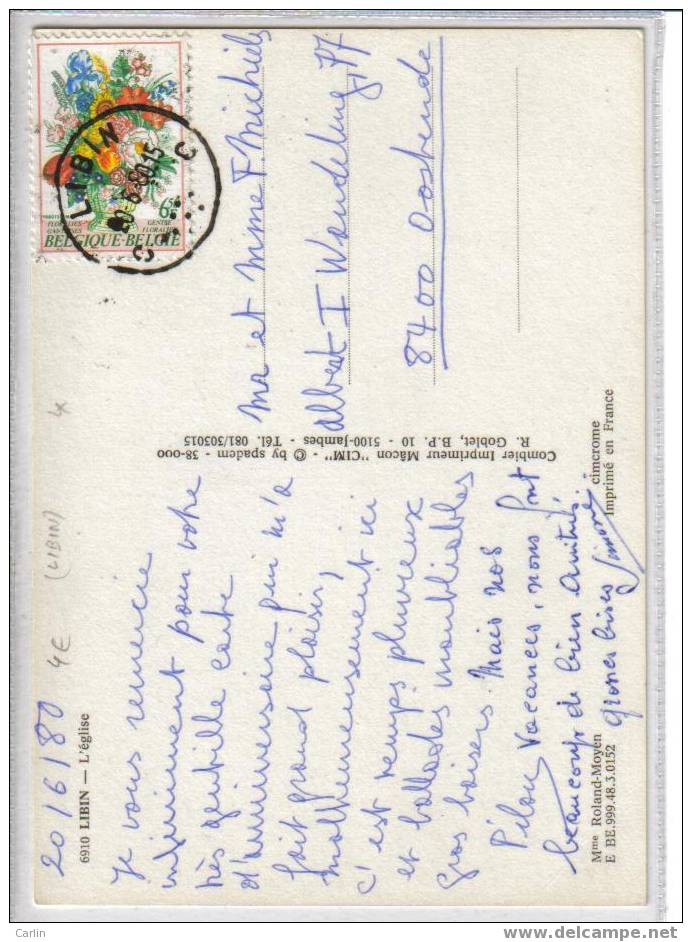 20/6/80
6910 LIBIN — L'église
Je vous remercie
infiniment pour votre
très gentille carte
d'anniversaire qui m'a
fait grand plaisir,
malheureusement ici
c'est temps pluvieux
et ballades inoubliables
gros baisers. Mais nos
Pilou vacances, nous font
beaucoup de bien amitiés.
grosses bises Simone
Mme Roland-Moyen
E BE.999.48.3.0152
cimcrome
Imprimé en France
Combier Imprimeur Mâcon "CIM" - © by spadem - 38-000
R. Goblet, B.P. 10 - 5100-Jambes - Tél. 081/303015
LIBIN
20-6-80 15
FLORALIES
GANTOISES
GENTSE
FLORALIËN
6,50F
BELGIQUE-BELGIË
Mr et Mme F Michiels
Albert I Wandeling, 77
8400 Oostende
4€ (LIBIN)
Carlin
www.delcampe.net